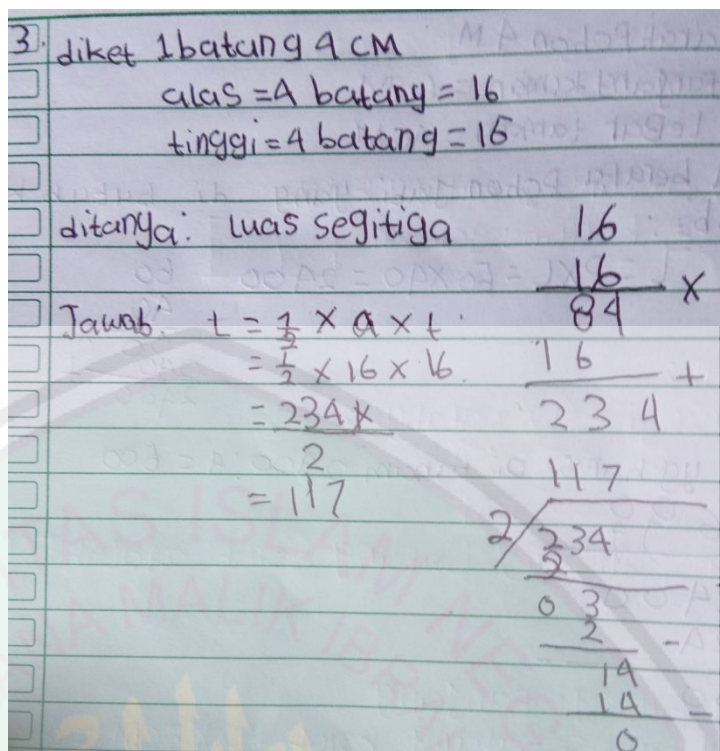 3. diket 1 batang 4 CM
alas = 4 batang = 16
tinggi = 4 batang = 16
ditanya: luas segitiga
Jawab: L = 1/2 x a x t.
= 1/2 x 16 x 16
= 234
2
= 117
16
16 x
84
16 +
234
117
2/234
2
03
2 -
14
14 -
0